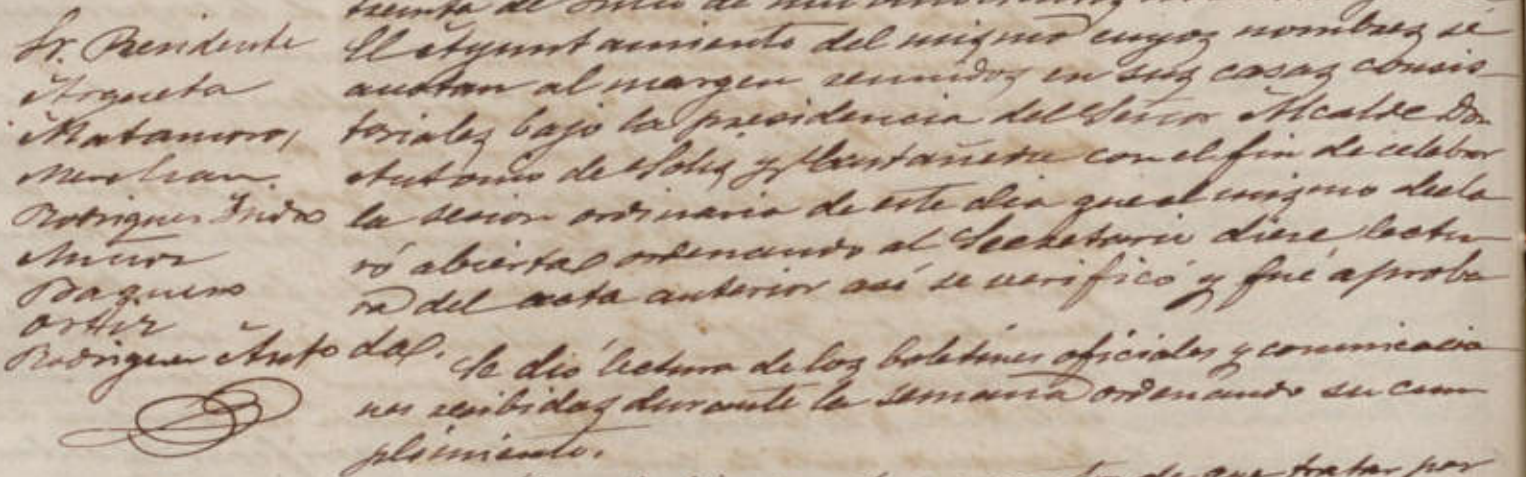 Sr. Presidente
Argueta
Matamoro,
Merchan.
Rodriguez Indo
Muñoz
Baquero
Ortiz
Rodriguez Anto
treinta de Julio de mil
El Ayuntamiento del mismo cuyos nombres se
anotan al margen reunidos en sus casas consis
toriales bajo la presidencia del Señor Alcalde Don
Antonio de Solis y Castañeda con el fin de celebrar
la sesion ordinaria de este dia que el mismo decla
ró abierta ordenando al Secretario diese lectu
ra del acta anterior asi se verificó y fué aproba
da.
Se dió lectura de los boletines oficiales y comunicacio
nes recibidas durante la semana ordenando su cum
plimiento.
de que tratar por